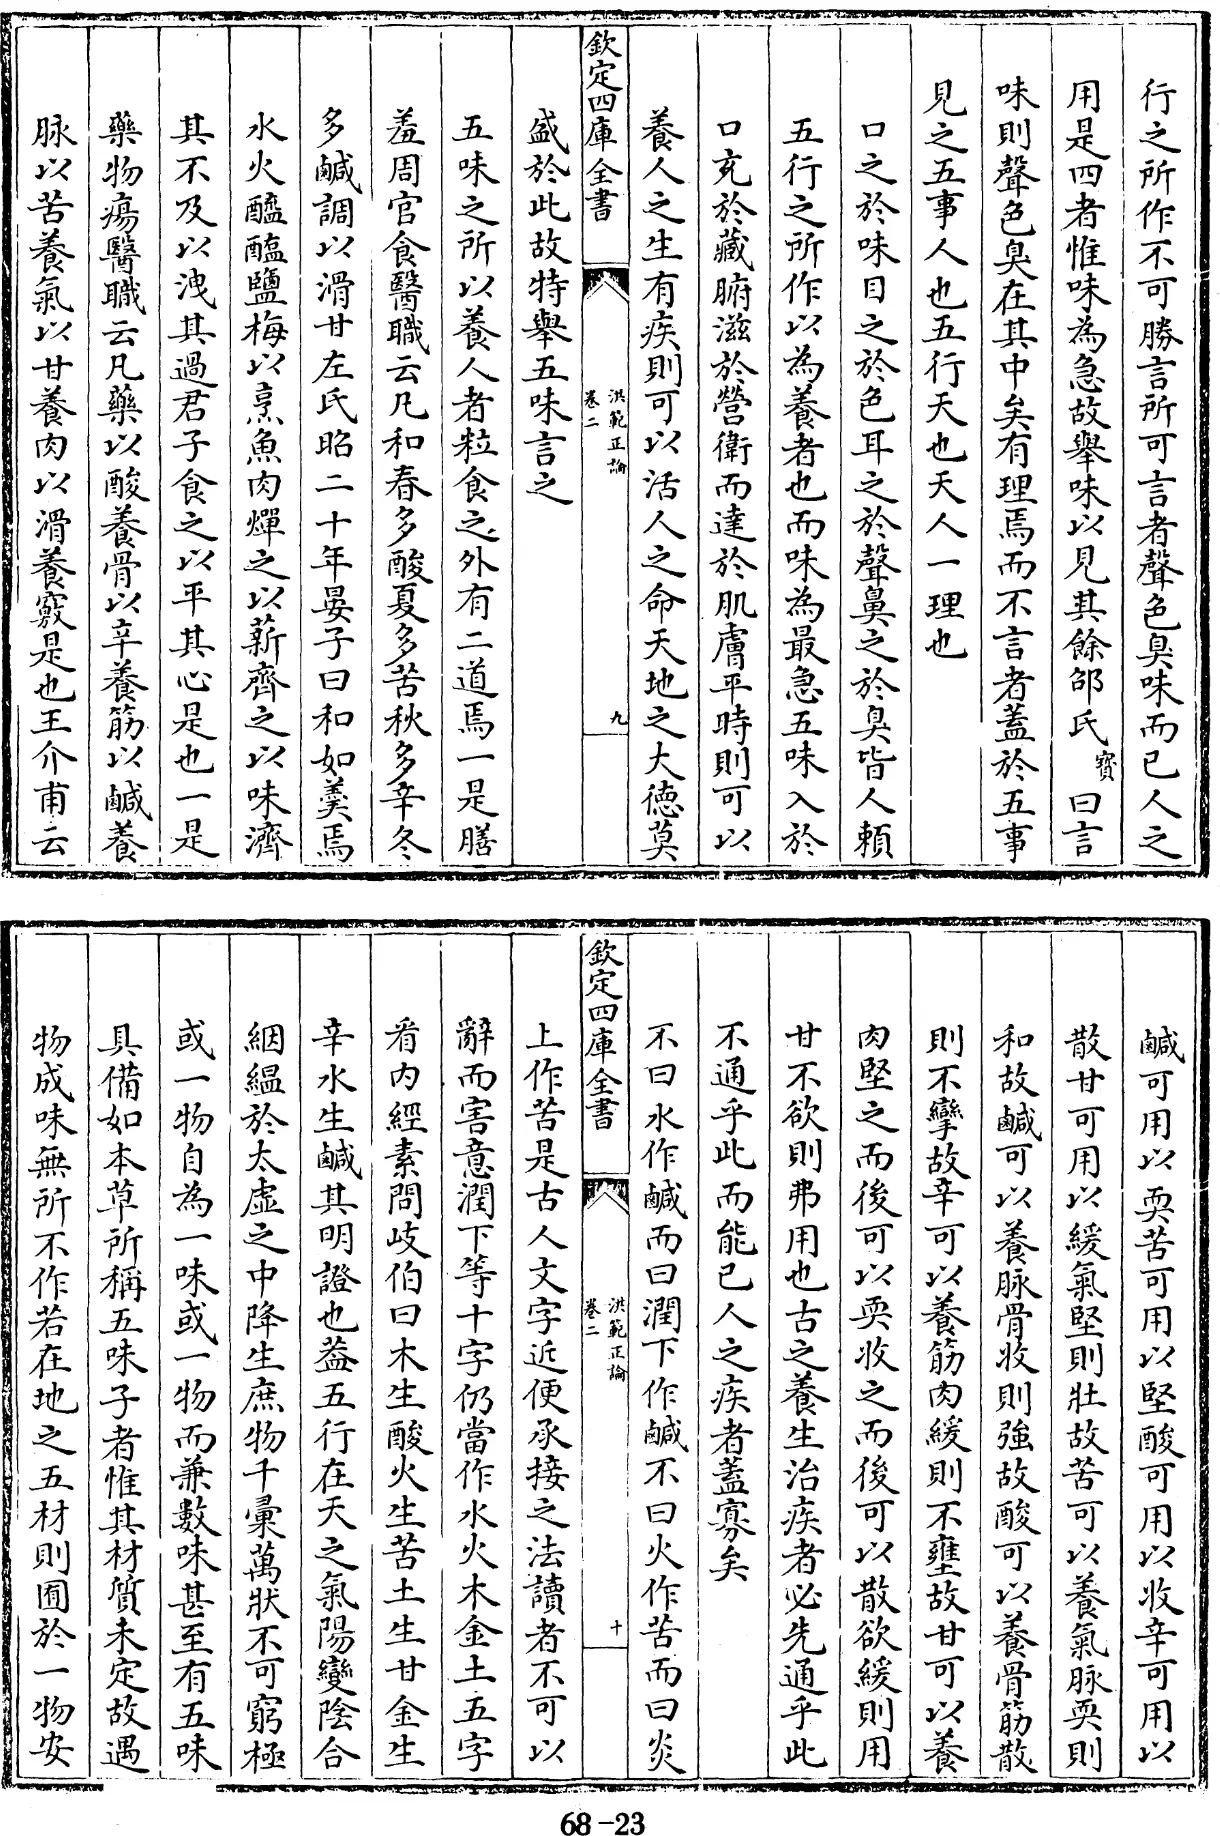 行之所作不可勝言所可言者聲色臭味而已人之
用是四者惟味為急故舉味以見其餘邵氏寶曰言
味則聲色臭在其中矣有理焉而不言者蓋於五事
見之五事人也五行天也天人一理也
口之於味目之於色耳之於聲鼻之於臭皆人頼
五行之所作以為養者也而味為最急五味入於
口充於藏腑滋於營衛而達於肌膚平時則可以
養人之生有疾則可以活人之命天地之大徳莫
欽定四庫全書
洪範正論
卷二
九
盛於此故特舉五味言之
五味之所以養人者粒食之外有二道焉一是膳
羞周官食醫職云凡和春多酸夏多苦秋多辛冬
多鹹調以滑甘左氏昭二十年晏子曰和如羮焉
水火醯醢鹽梅以烹魚肉燀之以薪齊之以味濟
其不及以洩其過君子食之以平其心是也一是
藥物瘍醫職云凡藥以酸養骨以辛養筋以鹹養
脉以苦養氣以甘養肉以滑養竅是也王介甫云
鹹可用以耎苦可用以堅酸可用以收辛可用以
散甘可用以緩氣堅則壯故苦可以養氣脉耎則
和故鹹可以養脉骨收則強故酸可以養骨筋散
則不攣故辛可以養筋肉緩則不壅故甘可以養
肉堅之而後可以耎收之而後可以散欲緩則用
甘不欲則弗用也古之養生治疾者必先通乎此
不通乎此而能已人之疾者蓋寡矣
不曰水作鹹而曰潤下作鹹不曰火作苦而曰炎
欽定四庫全書
洪範正論
卷二
十
上作苦是古人文字近便承接之法讀者不可以
辭而害意潤下等十字仍當作水火木金土五字
看内經素問岐伯曰木生酸火生苦土生甘金生
辛水生鹹其明證也葢五行在天之氣陽變陰合
絪緼於太虛之中降生庶物千彚萬狀不可窮極
或一物自為一味或一物而兼數味甚至有五味
具備如本草所稱五味子者惟其材質未定故遇
物成味無所不作若在地之五材則囿於一物安
68-23